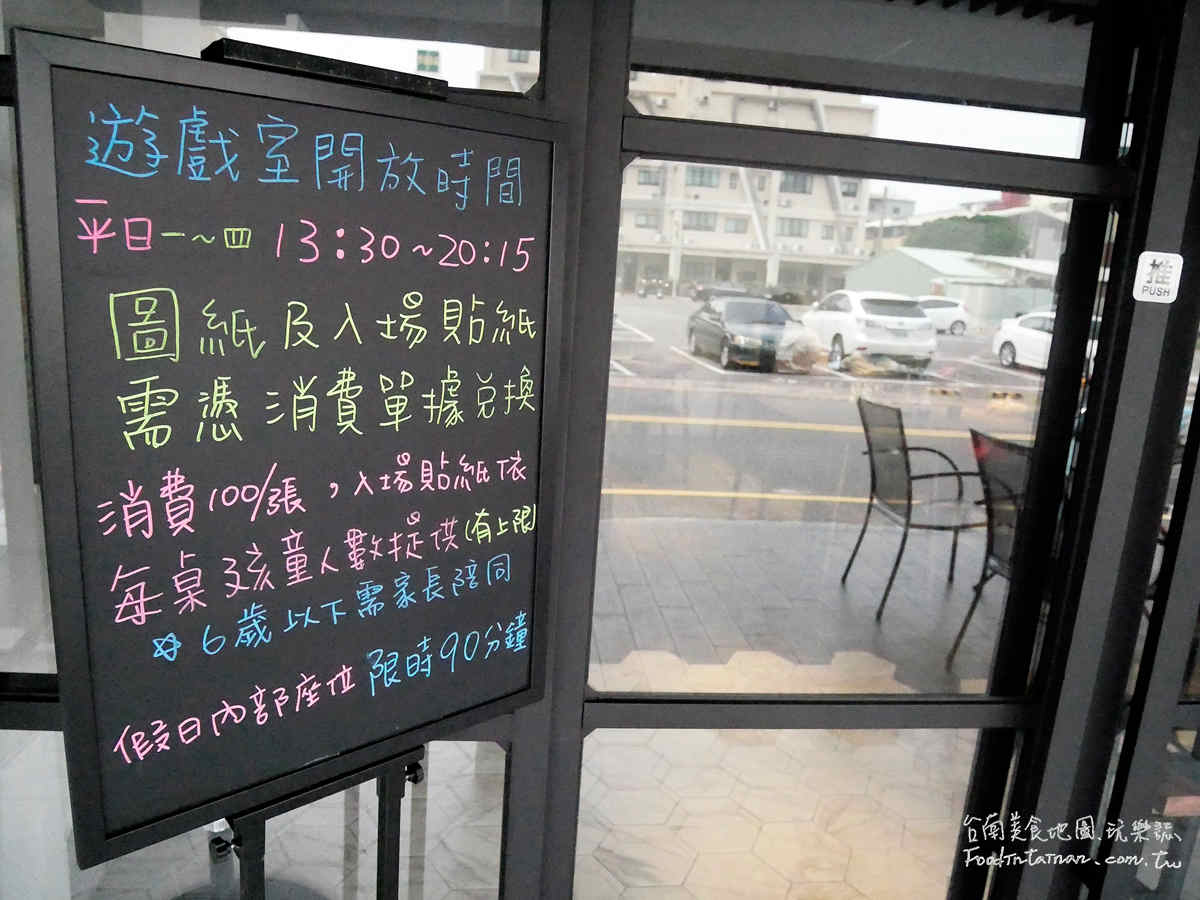 遊戲室開放時間
平日一~四 13:30~20:15
圖紙及入場貼紙
需憑消費單據兌換
消費100/張，入場貼紙依
每桌孩童人數提供(有上限)
6歲以下需家長陪同
假日內部座位 限時90分鐘
推
PUSH
台南美食地圖.玩樂誌
Foodintainan.com.tw